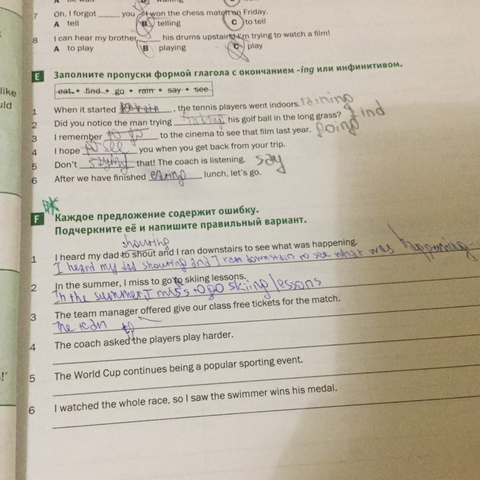 7 Oh, I forgot ______ you I won the chess match on Friday.
A tell B telling C to tell
8 I can hear my brother ______ his drums upstairs. I'm trying to watch a film!
A to play B playing C play
E Заполните пропуски формой глагола с окончанием -ing или инфинитивом.
eat • find • go • rain • say • see
1 When it started ______, the tennis players went indoors. raining
2 Did you notice the man trying ______ his golf ball in the long grass? find
3 I remember to go to the cinema to see that film last year. going
4 I hope to see you when you get back from your trip.
5 Don't saying that! The coach is listening. say
6 After we have finished eating lunch, let's go.
F Каждое предложение содержит ошибку.
Подчеркните её и напишите правильный вариант.
shouting
1 I heard my dad to shout and I ran downstairs to see what was happening.
I heard my dad shouting and I ran downstairs to see what was happening
2 In the summer, I miss to go to skiing lessons.
In the summer, I miss to go skiing lessons
3 The team manager offered give our class free tickets for the match.
The team to
4 The coach asked the players play harder.
5 The World Cup continues being a popular sporting event.
6 I watched the whole race, so I saw the swimmer wins his medal.